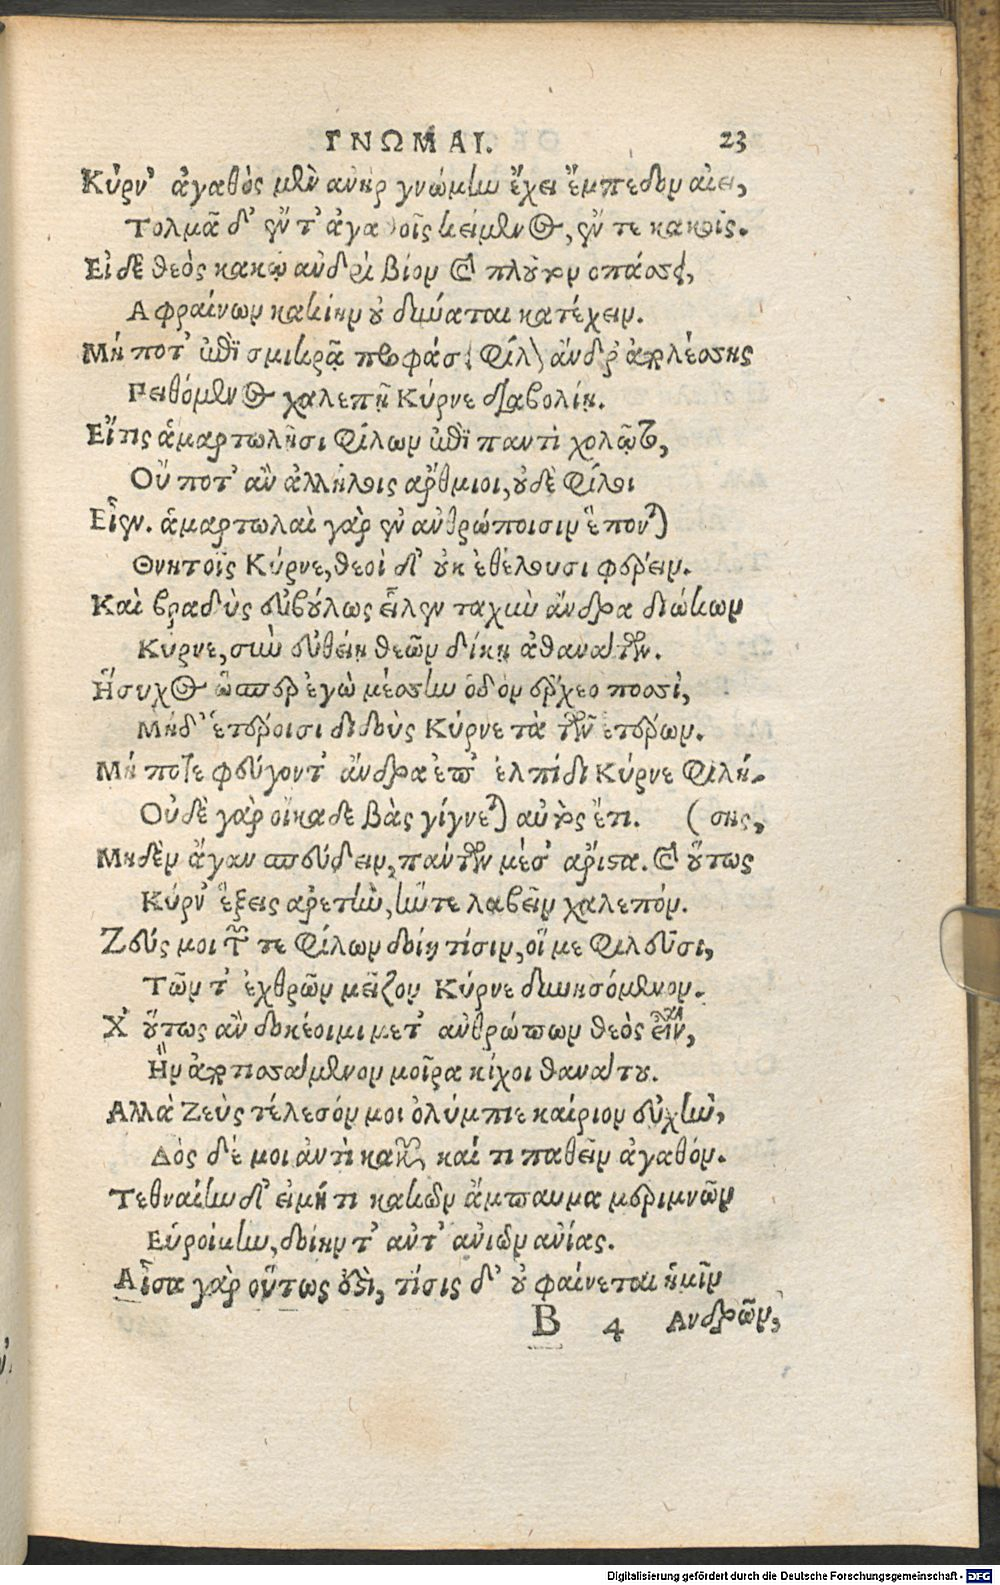 ΓΝΩΜΑΙ. 23
Κύρν' ἀγαθὸς μὲν ἀνὴρ γνώμην ἔχει ἔμπεδον αἰεί,
Τολμᾷ δ' ἔν τ' ἀγαθοῖς κείμενος, ἔν τε κακοῖς.
Εἰ δὲ θεὸς κακῷ ἀνδρὶ βίον καὶ πλοῦτον ὀπάσσει,
Αφραίνων κακίην οὐ δύναται κατέχειν.
Μή ποτ' ἐπὶ σμικρᾷ προφάσει φίλον ἄνδρ' ἀπολέσσης
Πειθόμενος χαλεπῇ Κύρνε διαβολίῃ.
Εἴ τις ἁμαρτωλῇσι φίλων ἐπὶ παντὶ χολῷτο,
Οὔ ποτ' ἂν ἀλλήλοις ἄρθμιοι, οὐδὲ φίλοι
Εἶεν. ἁμαρτωλαὶ γὰρ ἐν ἀνθρώποισιν ἕπονται
Θνητοῖς Κύρνε, θεοὶ δ' οὐκ ἐθέλουσι φέρειν.
Καὶ βραδὺς εὔβουλος εἷλεν ταχὺν ἄνδρα διώκων
Κύρνε, σὺν εὐθείῃ θεῶν δίκῃ ἀθανάτων.
Ἥσυχος ὥσπερ ἐγὼ μέσσην ὁδὸν ἔρχεο ποσσί,
Μηδ' ἑτέροισι διδοὺς Κύρνε τὰ τῶν ἑτέρων.
Μή ποτε φεύγοντ' ἄνδρα ἐπ' ἐλπίδι Κύρνε φιλή-
Οὐδὲ γὰρ οἴκαδε βὰς γίγνεται αὐτὸς ἔτι. ( σης,
Μηδὲν ἄγαν σπεύδειν, πάντων μέσ' ἄριστα. καὶ οὕτως
Κύρν' ἕξεις ἀρετὴν, ἥντε λαβεῖν χαλεπόν.
Ζεύς μοι τῶν τε φίλων δοίη τίσιν, οἵ με φιλεῦσι,
Τῶν τ' ἐχθρῶν μεῖζον Κύρνε δυνησόμενον.
Χ' οὕτως ἂν δοκέοιμι μετ' ἀνθρώπων θεὸς εἶναι,
Ἤν ἀποτισάμενον μοῖρα κίχοι θανάτου.
Αλλὰ Ζεὺς τέλεσόν μοι ὀλύμπιε καίριον εὐχὴν,
Δὸς δέ μοι ἀντὶ κακῶν καί τι παθεῖν ἀγαθόν.
Τεθναίην δ' εἰ μή τι κακῶν ἄμπαυμα μεριμνῶν
Εὑροίμην, δοίην τ' ἀντ' ἀνιῶν ἀνίας.
Αἶσα γὰρ οὕτως ἐστὶ, τίσις δ' οὐ φαίνεται ἡμῖν
B 4 Ανδρῶν,
Digitalisierung gefördert durch die Deutsche Forschungsgemeinschaft - DFG